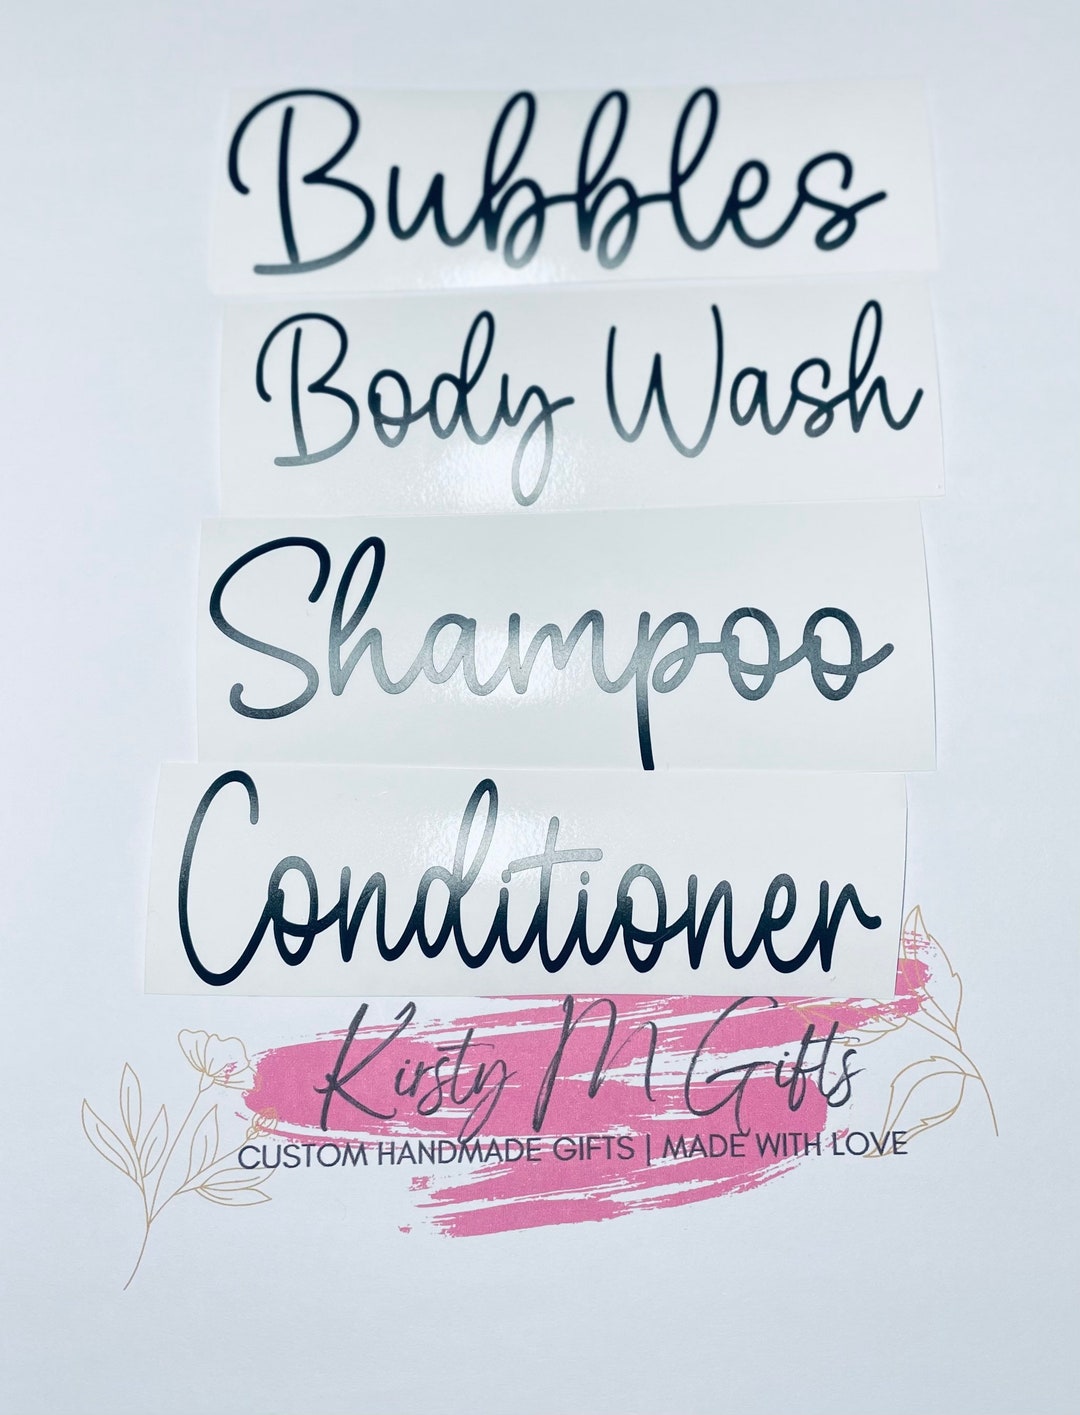 Bubbles
Body Wash
Shampoo
Conditioner
Kirsty M Gifts
CUSTOM HANDMADE GIFTS | MADE WITH LOVE